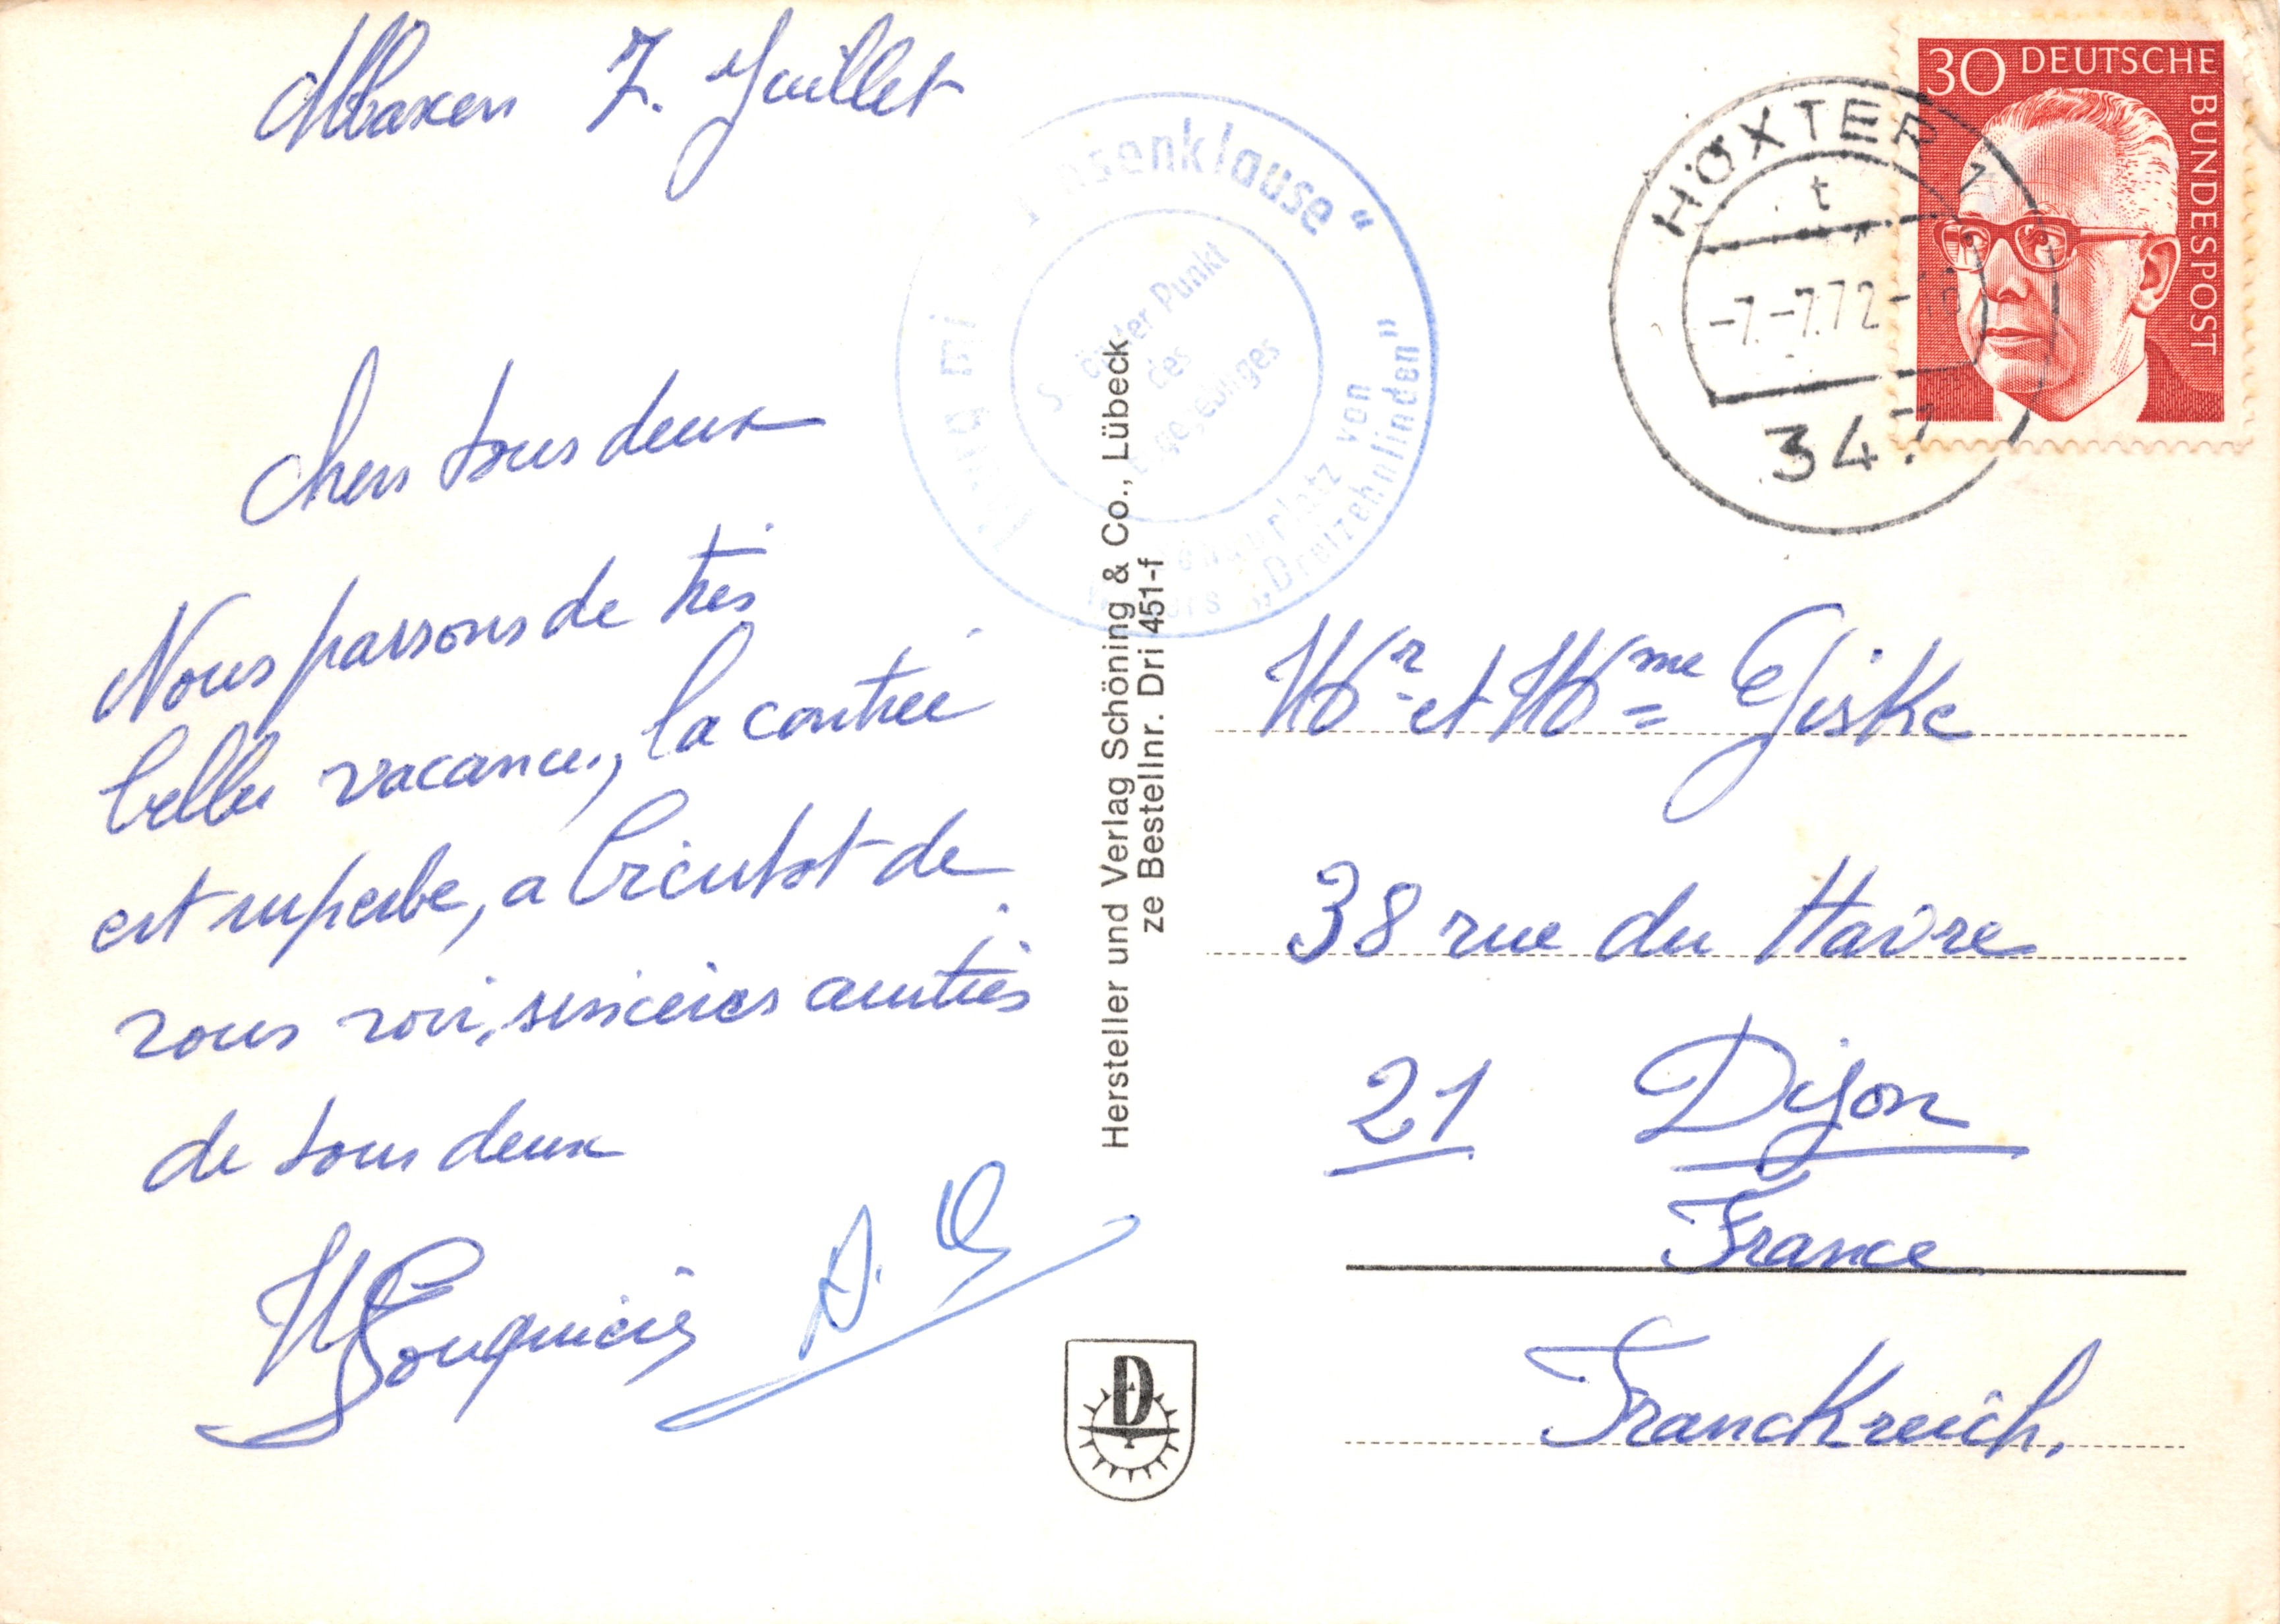 Albaxen 7. Juillet
Chers tous deux
Nous passons de très
belles vacances, la contrée
est superbe, a bientot de
vous voir, sincères amitiés
de tous deux
A.
senklause"
der Punkt
des
platz von
"Dreizehnlinden"
Hersteller und Verlag Schöning & Co., Lübeck
ze Bestellnr. Dri 451-f
30 DEUTSCHE
BUNDESPOST
HÖXTER 1
t
-7.-7.72-
347
Mr et Mme Giske
38 rue du Havre
21 Dijon
France
Franckreich.